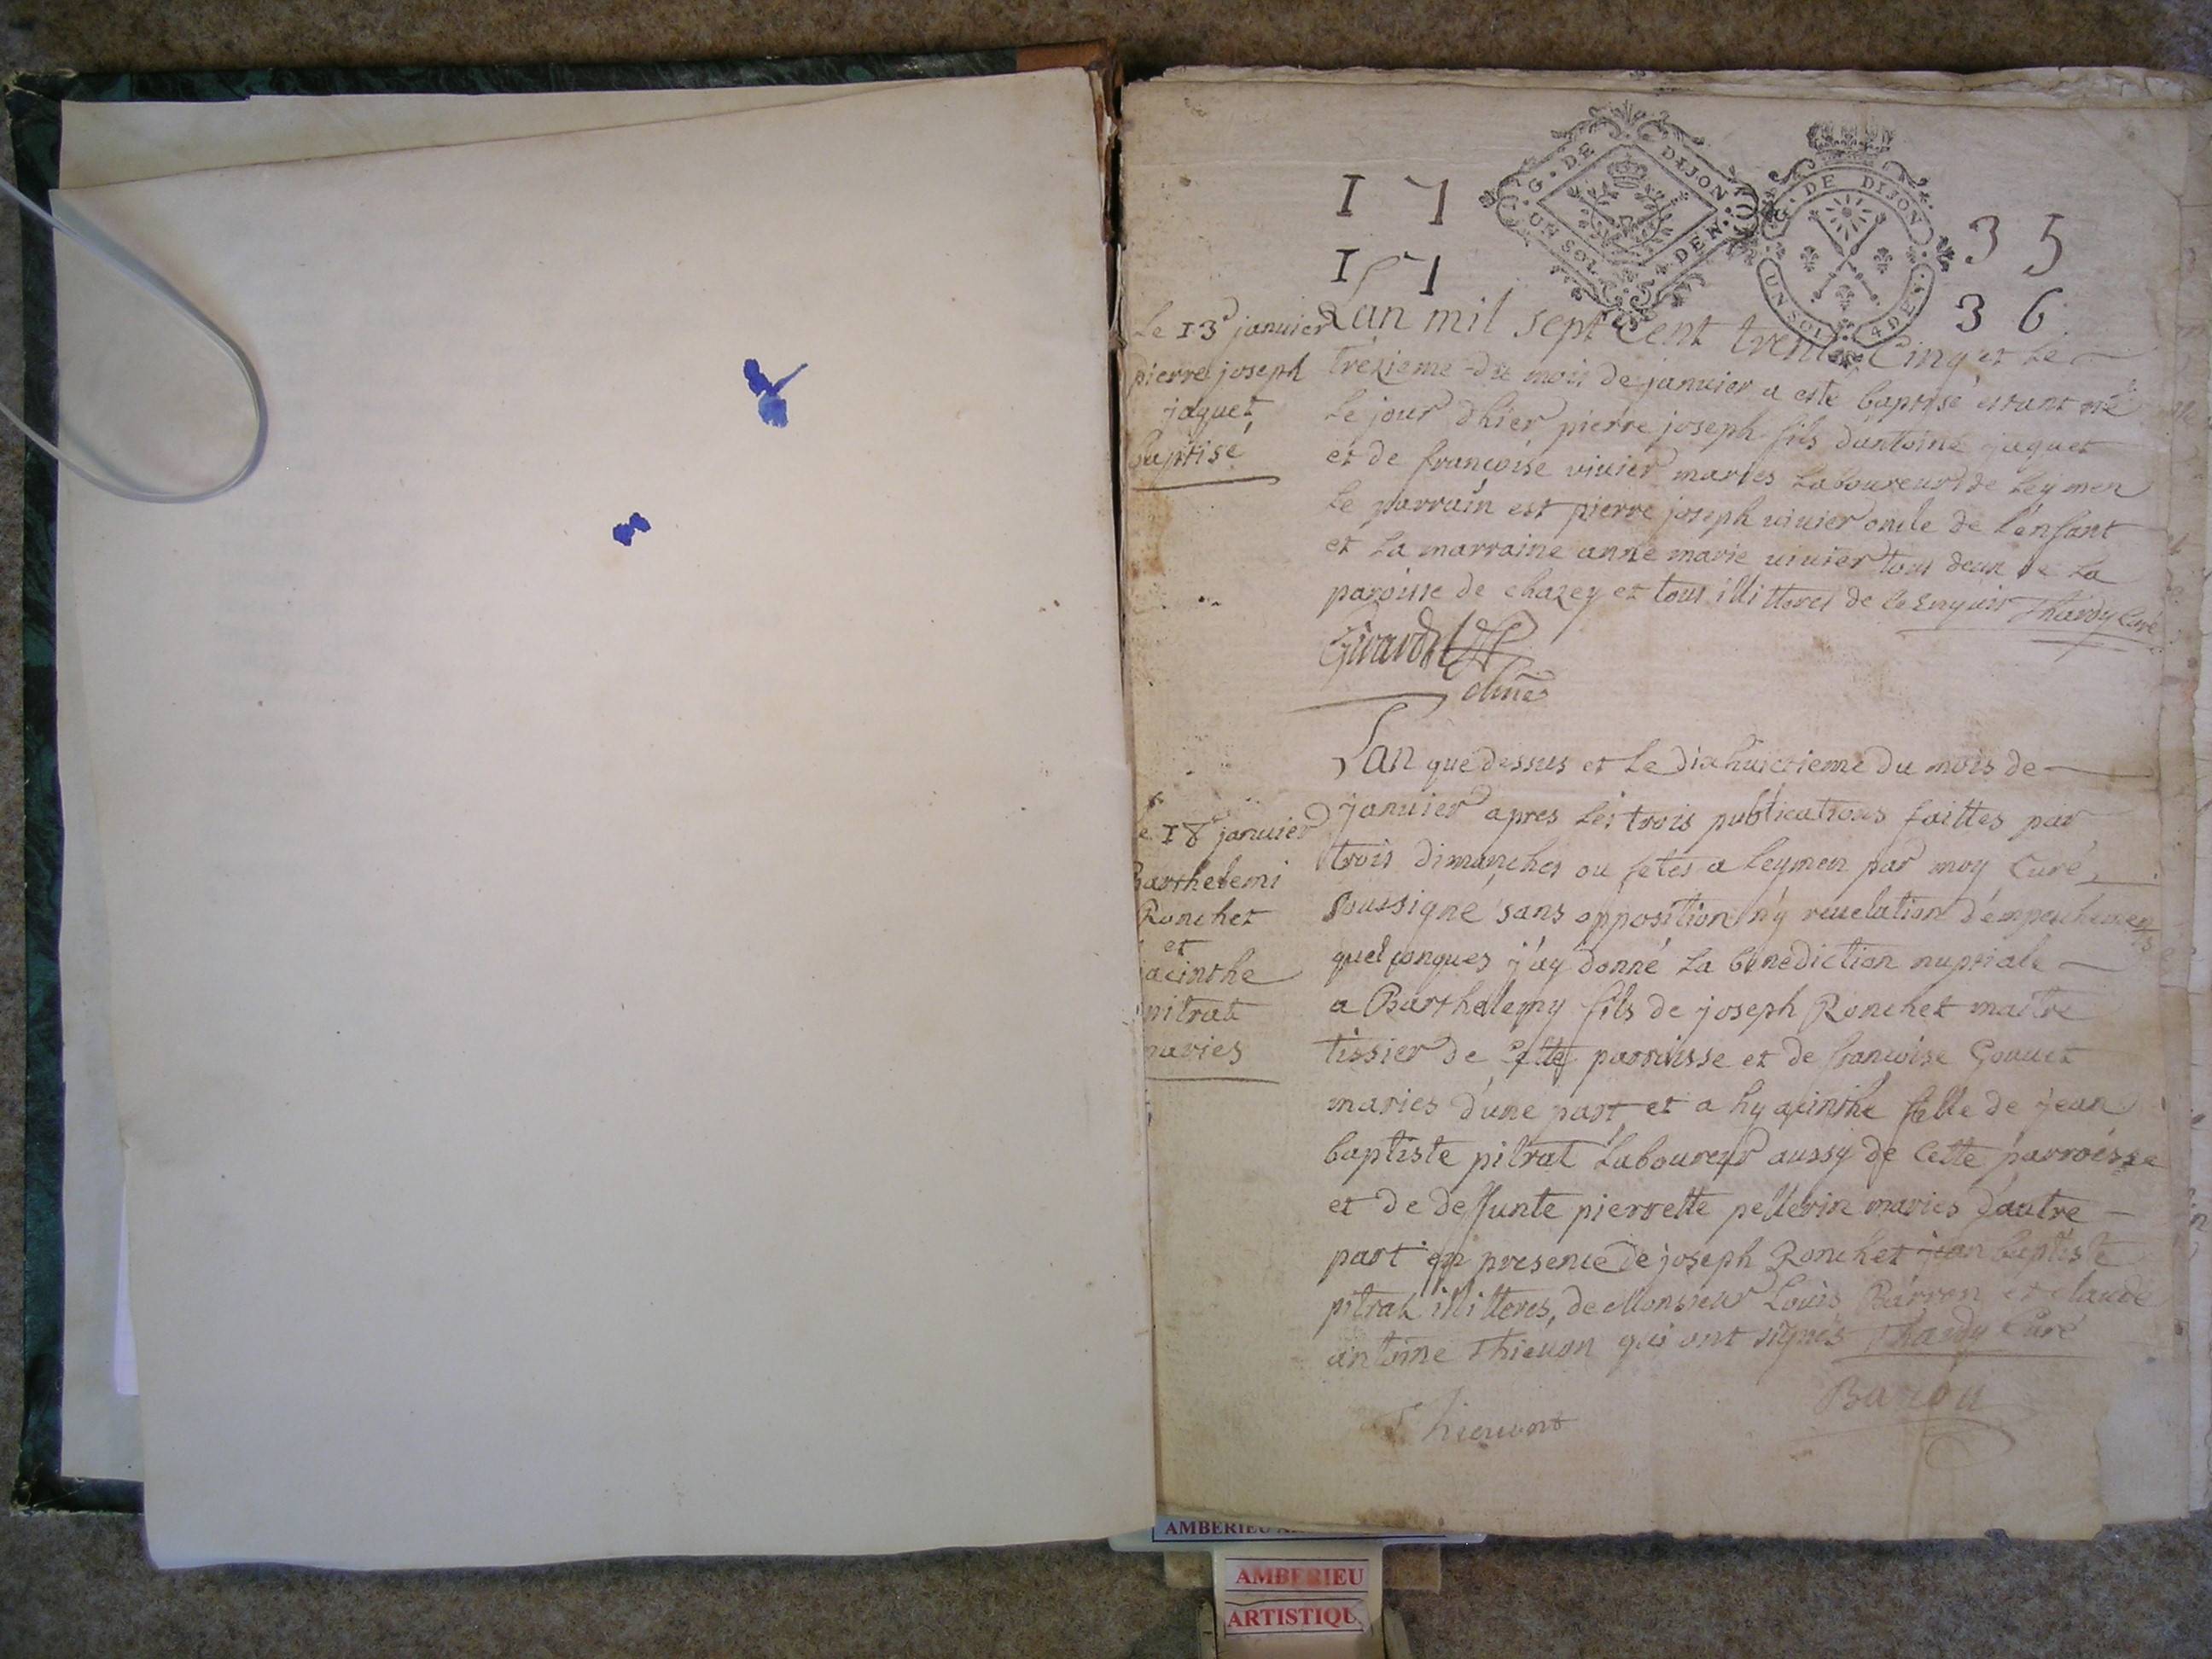 17 35
17 36
G. DE DIJON.
UN SOL 4 DEN.
G. DE DIJON.
UN SOL 4 DEN.
Le 13e janvier
pierre joseph
jaquet
baptisé
Lan mil sept Cent trente Cinq et le
trezieme du mois de janvier a esté baptisé estant né
le jour d'hier pierre joseph fils d'antoine jaquet
et de françoise vivier maries Laboureurs de Leymen
Le parrain est pierre joseph vivier oncle de l'enfant
et la marraine anne marie vivier tous deux de la
paroisse de chazey et tous illitteres de ce enquis Thardy Curé
Girardet
Lan que dessus et le dixhuictieme du mois de
janvier apres les trois publications faittes par
trois dimanches ou fetes a leymen par moy Curé
soussigné sans opposition n'y revelation d'empechements
quelconques j'ay donné la benediction nuptiale
a Barthelemy fils de joseph Ronchet maitre
tissier de Cette parroisse et de françoise Gouuet
maries d'une part et a hyacinthe fille de jean
baptiste pitrat Laboureur aussy de Cette parroisse
et de deffunte pierrette pellerin maries d'autre
part en presence de joseph Ronchet jean baptiste
pitrat illitteres, de Monsieur Louis Barron et claude
antoine Thieuon qui ont signés Thardy Curé
e 18e janvier
Barthelemi
Ronchet
et
jacinthe
pitrat
maries
Baron
Thieuont
AMBERIEU
AMBERIEU
ARTISTIQU